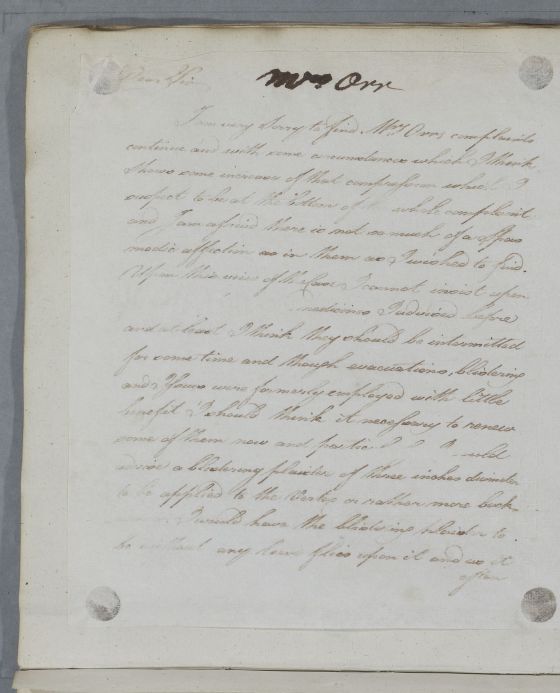 Dear Sir
Mrs Orr
I am very sorry to find Mrs Orrs complaints
continue and with some circumstances which I think
shows some increase of that compression which I
suspect to be at the bottom of the whole complaint
and I am afraid there is not so much of a spas
modic affection in them as I wished to find.
Upon this view of the Case I cannot insist upon
medicines I advised before
and at least I think they should be intermitted
for some time and though evacuations, blistering
and were formerly employed with little
benefit I should think it necessary to renew
some of them now and
advise a blistering plaister of three inches diameter
to be applied to the Vertex or rather more back-
I would have the blistering plaister to
be without any flies upon it and as it
often